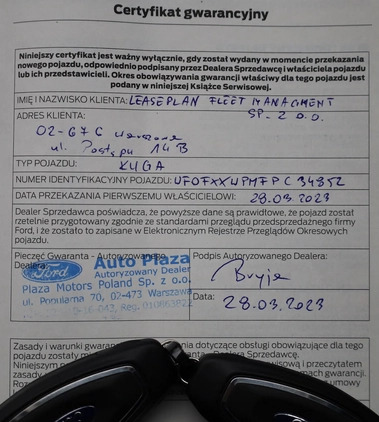 Certyfikat gwarancyjny
Niniejszy certyfikat jest ważny wyłącznie, gdy został wydany w momencie przekazania
nowego pojazdu, odpowiednio podpisany przez Dealera Sprzedawcę i właściciela pojazdu
lub ich przedstawicieli. Okres obowiązywania gwarancji właściwy dla tego pojazdu jest
podany w niniejszej Książce Serwisowej.
IMIĘ I NAZWISKO KLIENTA: LEASEPLAN FLEET MANAGMENT
ADRES KLIENTA: SP. Z O.O.
02-676 Warszawa
ul. Postępu 14B
TYP POJAZDU: KUGA
NUMER IDENTYFIKACYJNY POJAZDU: WF0FXXWPMFPC34852
DATA PRZEKAZANIA PIERWSZEMU WŁAŚCICIELOWI: 28.03.2023
Dealer Sprzedawca poświadcza, że powyższe dane są prawidłowe, że pojazd został
rzetelnie przygotowany zgodnie ze standardami przeglądu przedsprzedażnego firmy
Ford, i że zostało to zapisane w Elektronicznym Rejestrze Przeglądów Okresowych
pojazdu.
Pieczęć Gwaranta - Autoryzowanego
Dealera:
Podpis Autoryzowanego Dealera:
Ford
Auto Plaza
Autoryzowany Dealer
Plaza Motors Poland Sp. z o.o.
ul. Popularna 70, 02-473 Warszawa
Bryja
Data: 28.03.2023
Zasady i warunki gwarancji
nia dotyczące obsługi obowiązujące dla tego
pojazdu zostały
ranta - Dealera Sprzedawcę.
Niniejszym
wisową i przeczytałem
zasady
mach gwarancji.
umowy